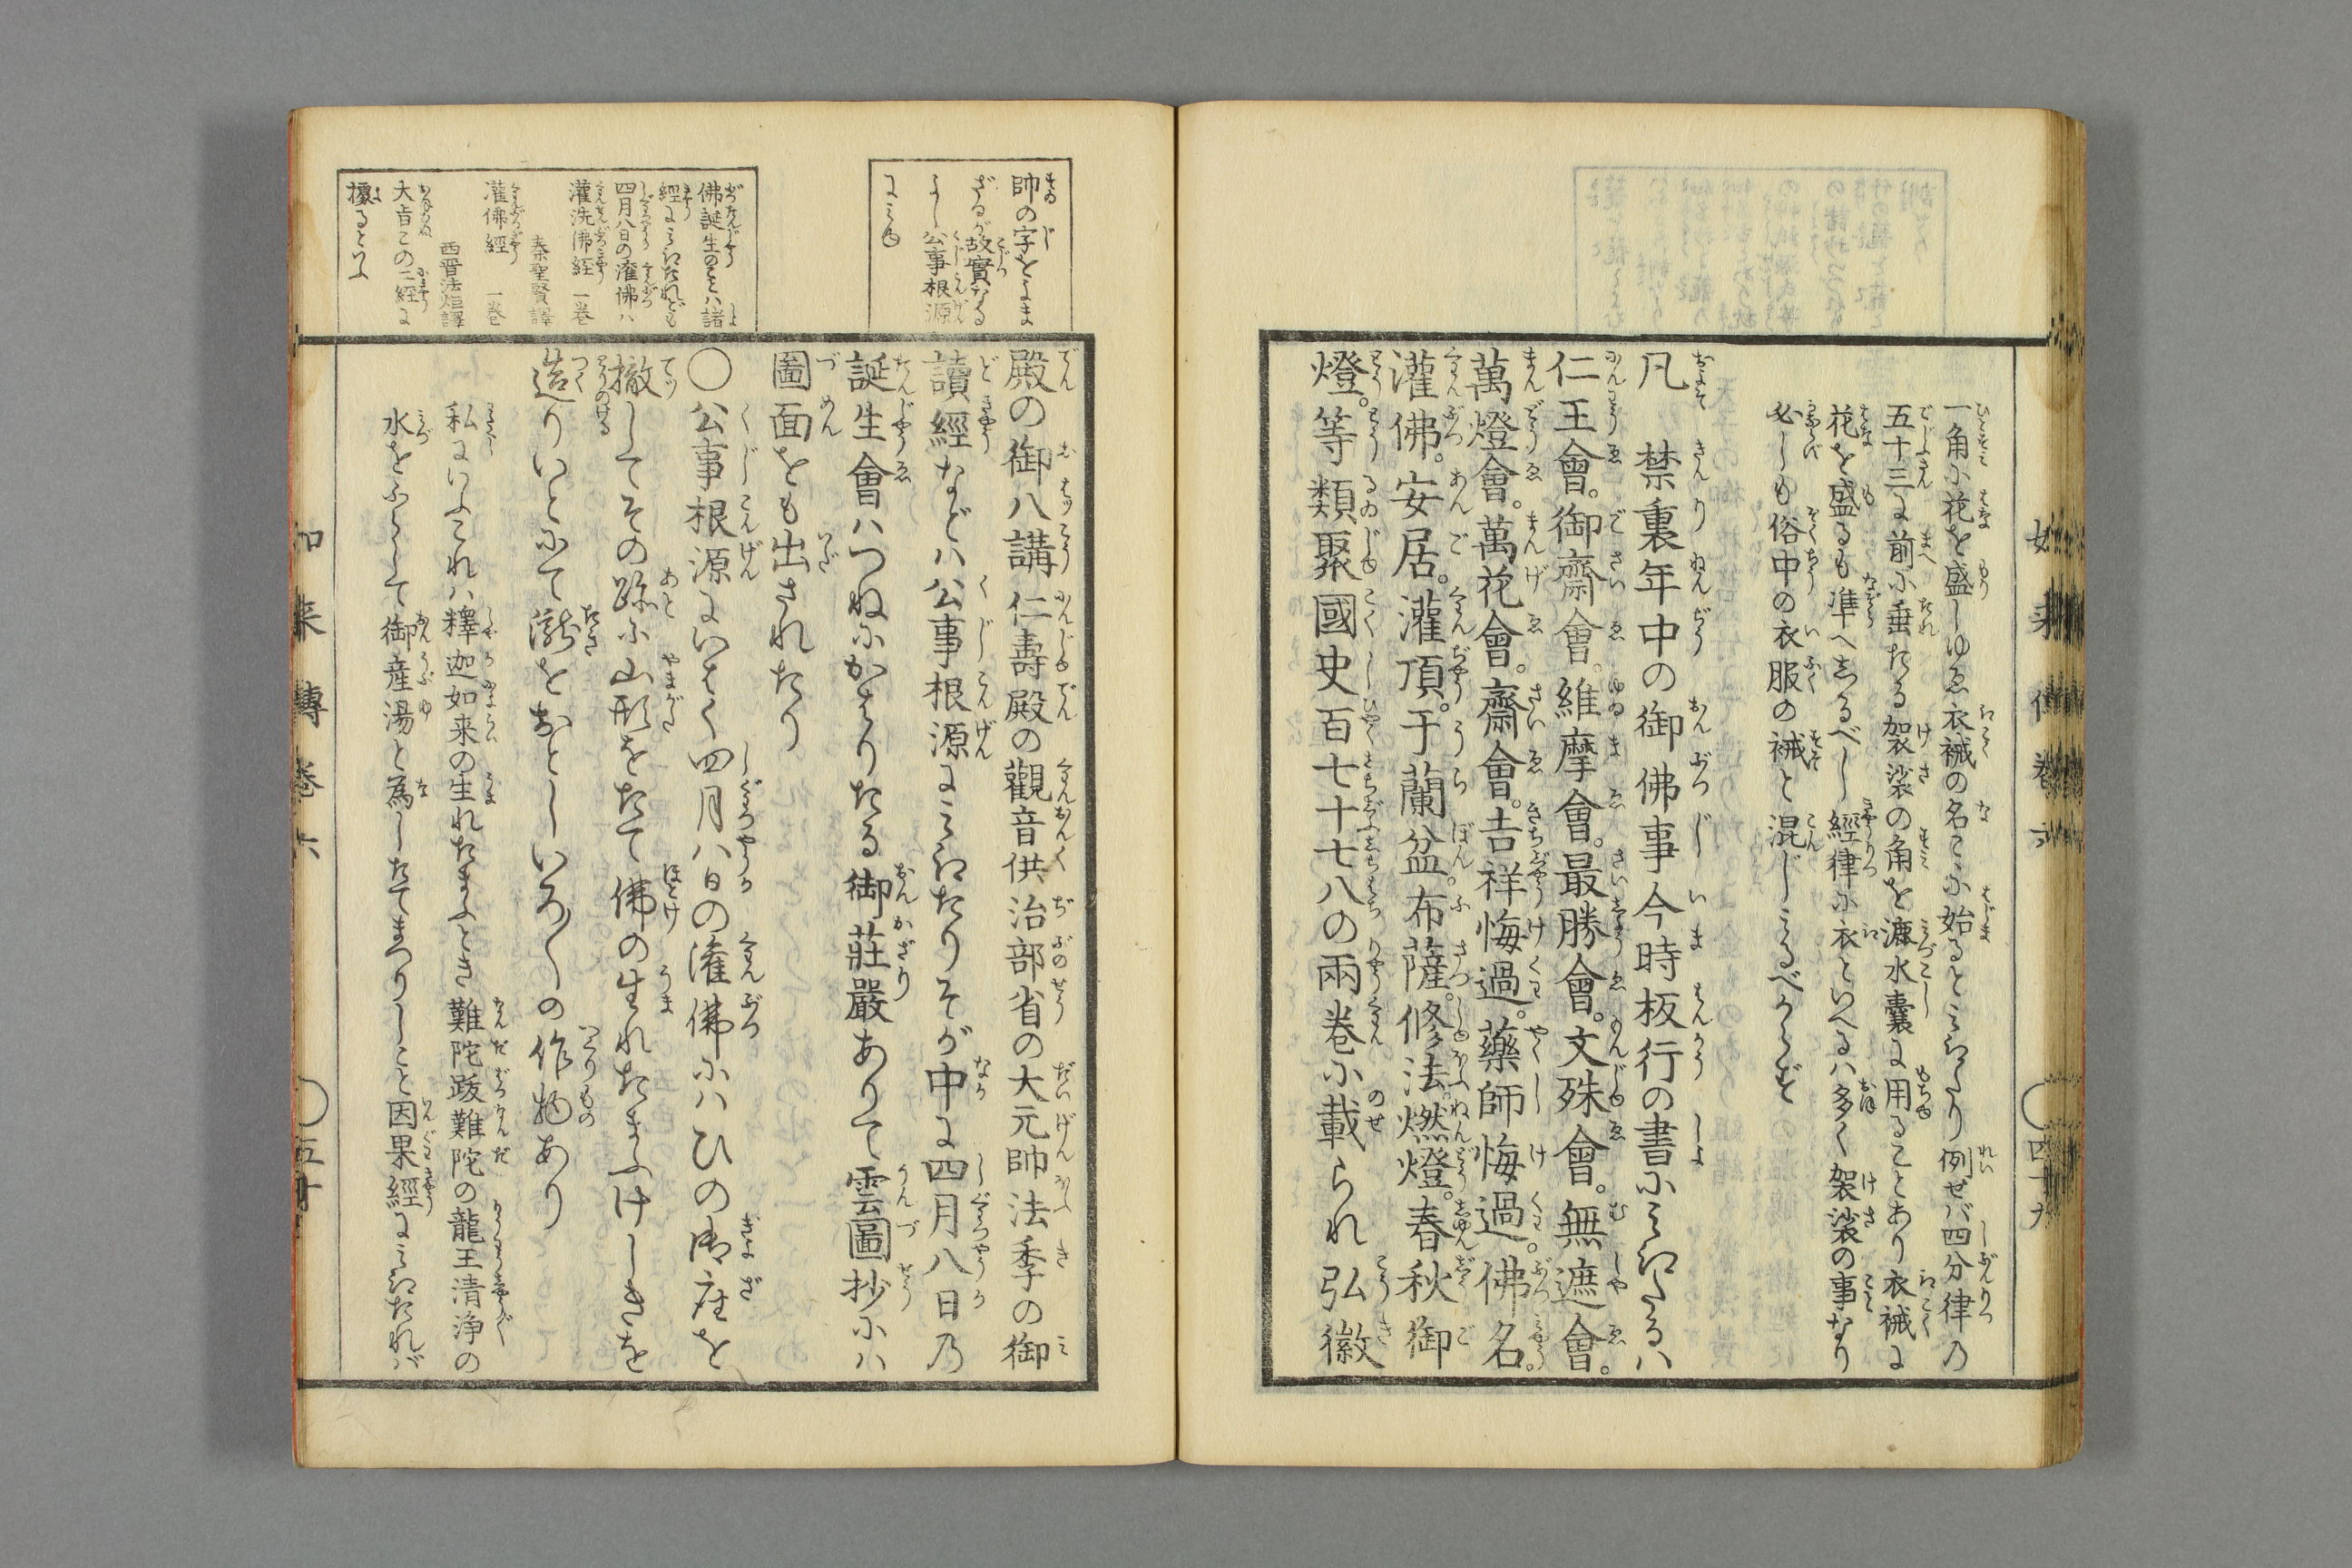 一角に花を盛しゆゑ衣裓の名こゝに始るとミえたり例せバ四分律乃
五十三に前に垂たる袈裟の角を漉水嚢に用ることあり衣裓に
花を盛るも準へしるべし經律に衣といへるハ多く袈裟の事なり
必しも俗中の衣服の裓と混じミるべからず
凡 禁裏年中の御佛事今時板行の書にミえたるハ
仁王會。御齋會。維摩會。最勝會。文殊會。無遮會。
萬燈會。萬花會。齋會。吉祥悔過。藥師悔過。佛名。
灌佛。安居。灌頂。于蘭盆。布薩。修法。燃燈。春秋御
燈。等類聚國史百七十七八の兩巻に載られ弘徽
帥の字をよま
ざるが故實なる
よし公事根源
にミゆ
殿の御八講仁壽殿の觀音供治部省の大元帥法季の御
讀經などハ公事根源にミえたりそが中に四月八日乃
誕生會ハつねにかはりたる御莊嚴ありて雲圖抄にハ
圖面をも出されたり
佛誕生のことハ諸
經にミえたれども
四月八日の灌佛ハ
灌洗佛經 一巻
秦聖賢譯
灌佛經 一巻
西晋法炬譯
大旨この二經に
據るといふ
〇公事根源にいはく四月八日の灌佛にハひの御座を
撤してその跡に山形をたて佛の生れたまふけしきを
造りいとにて瀧をおとしいろ〳〵の作物あり
私にいふこれハ釋迦如来の生れたまふとき難陀跋難陀の龍王清浄の
水をふらして御産湯と為したてまつりしこと因果經にミえたれバ
如来傳巻六
四十九
如来傳巻六
五十